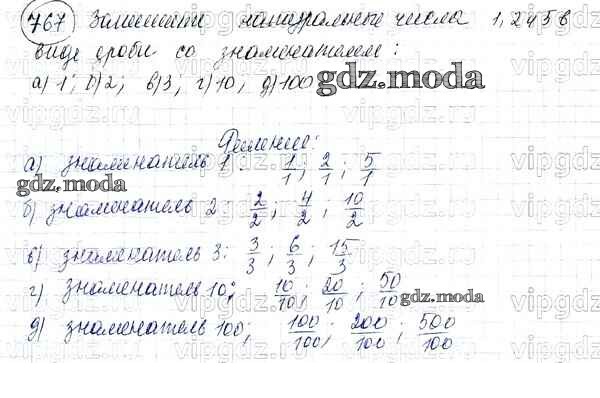 767 Запишите натуральные числа 1, 2 и 5 в
виде дроби со знаменателем:
а) 1; б) 2; в) 3, г) 10, д) 100
gdz.moda
Решение:
а) знаменатель 1: 1/1; 2/1; 5/1
gdz.moda
б) знаменатель 2: 2/2; 4/2; 10/2
в) знаменатель 3: 3/3; 6/3; 15/3
г) знаменатель 10; 10/10; 20/10; 50/10
gdz.moda
д) знаменатель 100; 100/100; 200/100; 500/100
vipgdz.ru